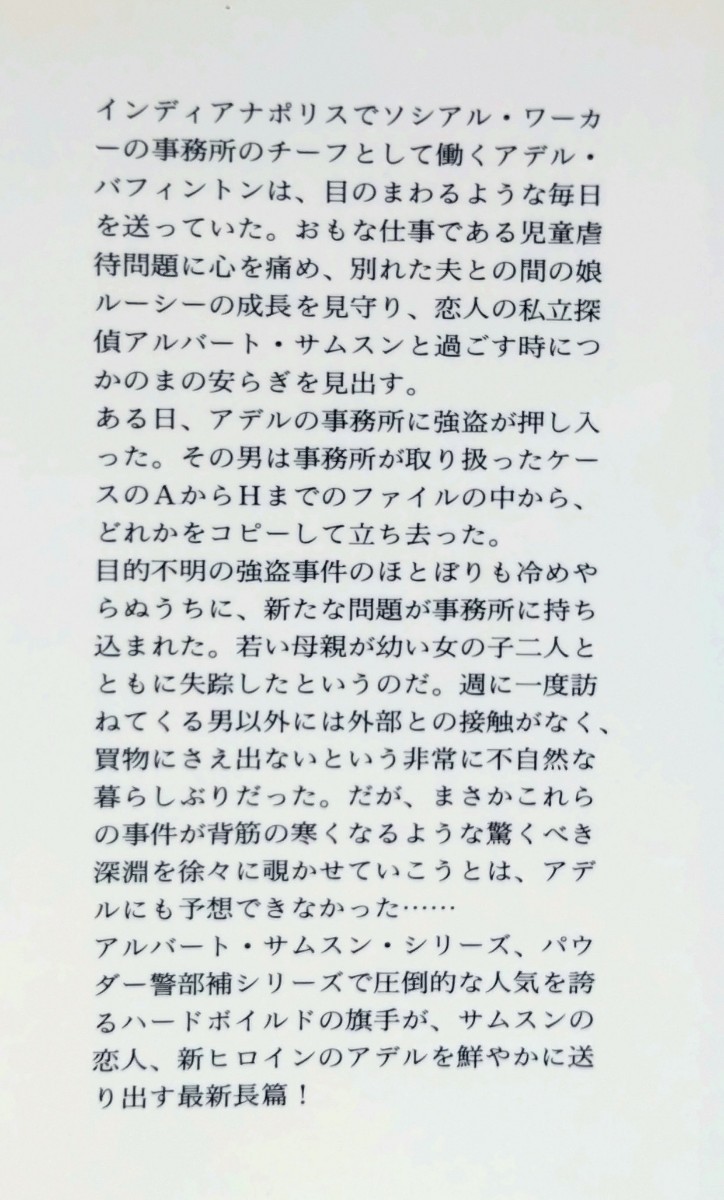 インディアナポリスでソシアル・ワーカ
ーの事務所のチーフとして働くアデル・
バフィントンは、目のまわるような毎日
を送っていた。おもな仕事である児童虐
待問題に心を痛め、別れた夫との間の娘
ルーシーの成長を見守り、恋人の私立探
偵アルバート・サムスンと過ごす時につ
かのまの安らぎを見出す。
ある日、アデルの事務所に強盗が押し入
った。その男は事務所が取り扱ったケー
スのAからHまでのファイルの中から、
どれかをコピーして立ち去った。
目的不明の強盗事件のほとぼりも冷めや
らぬうちに、新たな問題が事務所に持ち
込まれた。若い母親が幼い女の子二人と
ともに失踪したというのだ。週に一度訪
ねてくる男以外には外部との接触がなく、
買物にさえ出ないという非常に不自然な
暮らしぶりだった。だが、まさかこれら
の事件が背筋の寒くなるような驚くべき
深淵を徐々に覗かせていこうとは、アデ
ルにも予想できなかった……
アルバート・サムスン・シリーズ、パウ
ダー警部補シリーズで圧倒的な人気を誇
るハードボイルドの旗手が、サムスンの
恋人、新ヒロインのアデルを鮮やかに送
り出す最新長篇！